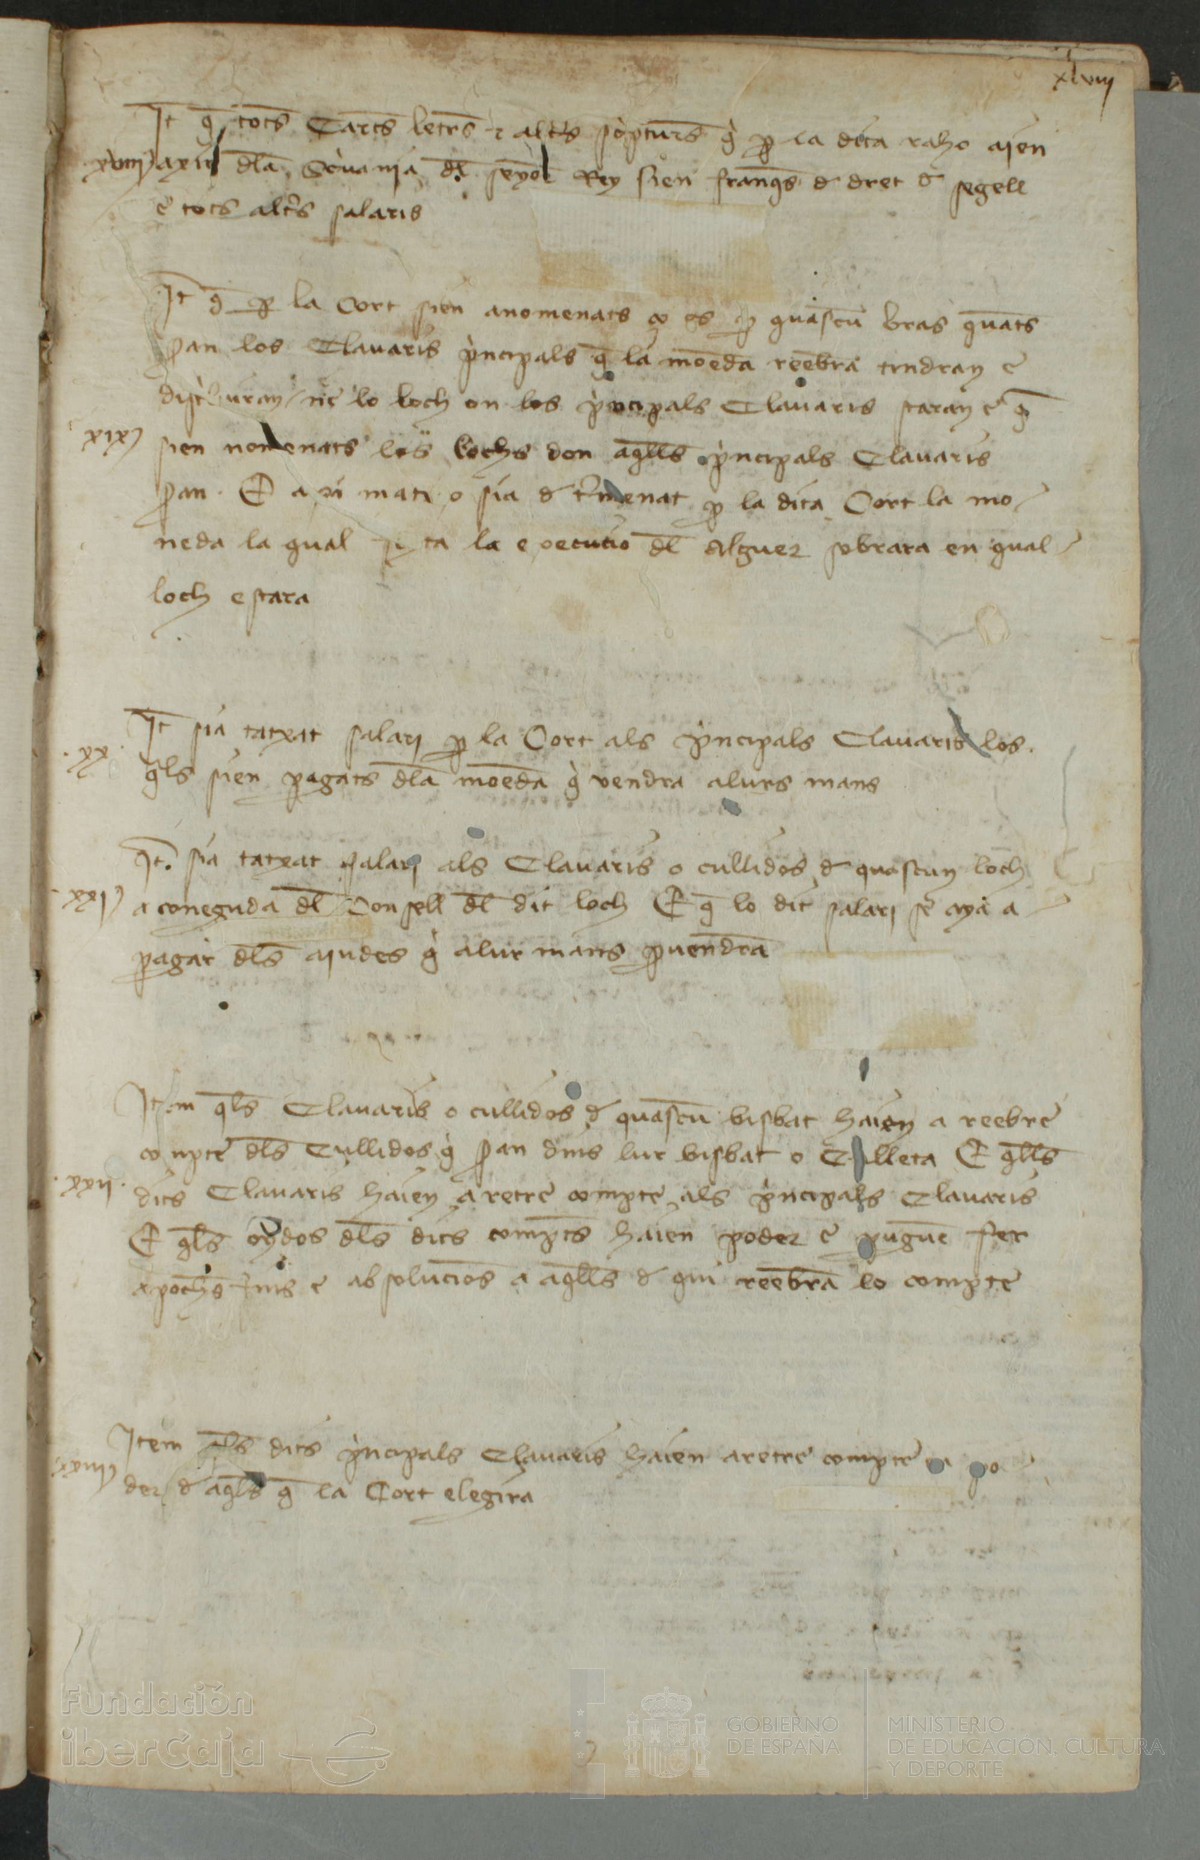 xlviij
It q̄ tots Cartes letres ⁊ altres scriptures q̄ ꝑ la dita raho aien
xviiij axir dl̄a Scrivania dl̄ senyor Rey sien franqs d dret d segell
e tots altrs salaris
It q̄ ꝑ la Cort sien anomenats ço es ꝑ quascu bras quants
seran los Clavaris principals q̄ la moneda reebra tindran e
distriburan ne lo loch on los principals Clavaris staran e q̄
xix sien nomenats los lochs don aqlls principals Clavaris
seran E axi mateix sia d t'menat ꝑ la dita Cort la mo
neda la qual feta la execucio dl̄ Alguer sobrara en qual
loch estara
xx It sia tatxat salari ꝑ la Cort als principals Clavaris los
qls sien pagats dl̄a moneda q̄ vendra a lurs mans
It sia tatxat salari als Clavaris o cullidos d quascun loch
xxi a coneguda dl̄ Consell dl̄ dit loch E q̄ lo dit salari se aya a
pagar dl̄s aiudes q̄ a lur mans ꝑvendra
Item qls Clavaris o cullidos d quascu bisbat haien a reebre
compte dl̄s Cullidos q̄ seran dins lur bisbat o Culleta E qlls
xxii dits Clavaris haien a retre compte als principals Clavaris
E qls oydos dl̄s dits comptes haien poder e pugue fer
apoches fins e absolucions a aqlls d qui reebra lo compte
Item qls dits principals Clavaris haien a retre compte en po
xxiij der d aqlls q̄ la Cort elegira
Fundación
iberCaja
GOBIERNO
DE ESPAÑA
MINISTERIO
DE EDUCACIÓN, CULTURA
Y DEPORTE